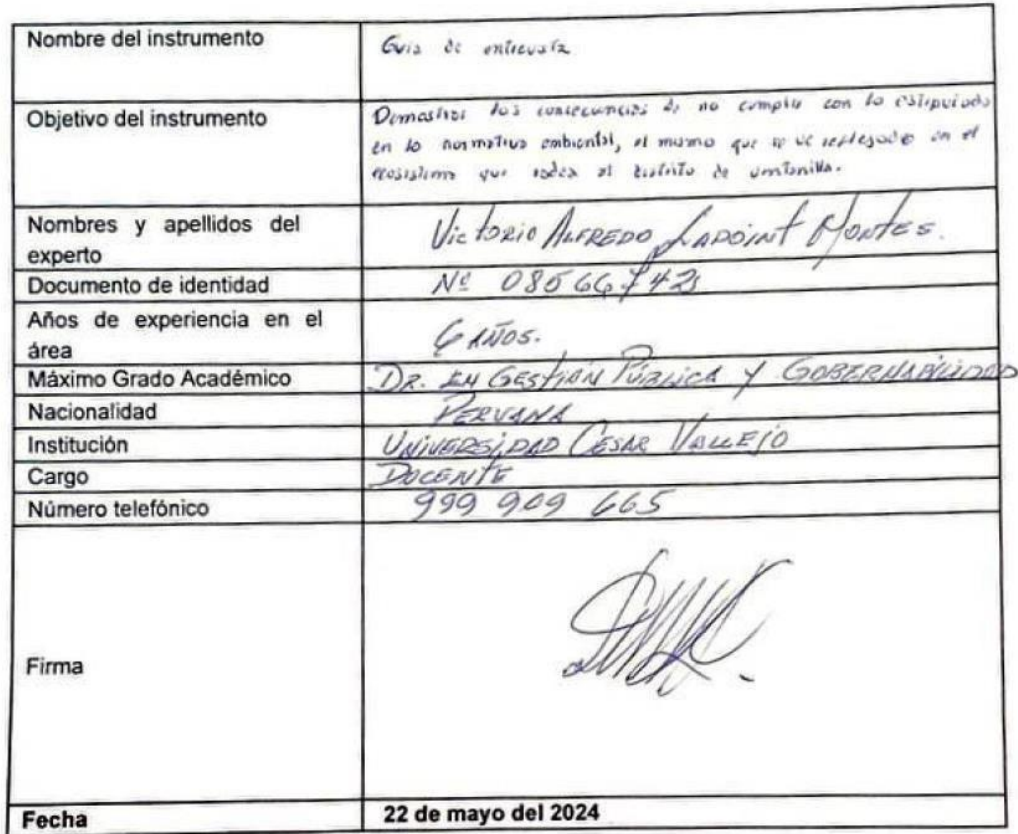 Nombre del instrumento
Guia de entrevista
Objetivo del instrumento
Demostrar las consecuencias de no cumplir con lo estipulado
en la normativa ambiental, el mismo que se ve reflejado en el
ecosistema que rodea al distrito de ventanilla.
Nombres y apellidos del
experto
Victorio Alfredo Ladoint Montes.
Documento de identidad
Nº
Años de experiencia en el
área
6 AÑOS.
Máximo Grado Académico
DR. EN GESTIÓN PÚBLICA Y GOBERNABILIDAD
Nacionalidad
PERUANA
Institución
UNIVERSIDAD CESAR VALLEJO
Cargo
DOCENTE
Número telefónico
999 909 665
Firma
Fecha
22 de mayo del 2024